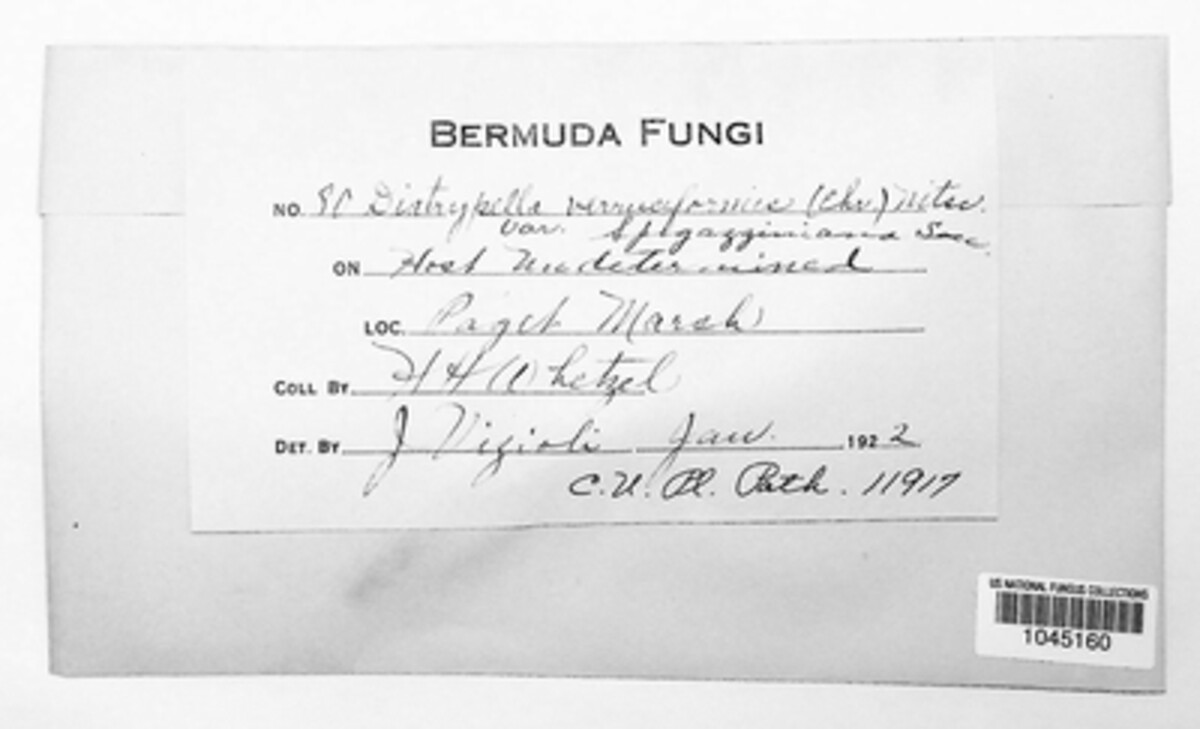 BERMUDA FUNGI
NO. 8C Diatrypella verrucaformis (Ehr.) Nitsc.
var. Spegazziniana Sacc
ON Host Undetermined
LOC. Paget Marsh
COLL BY H H Whetzel
DET. BY J Vizioli Jan. 1922
C. U. Pl. Path. 11917
US NATIONAL FUNGUS COLLECTIONS
1045160